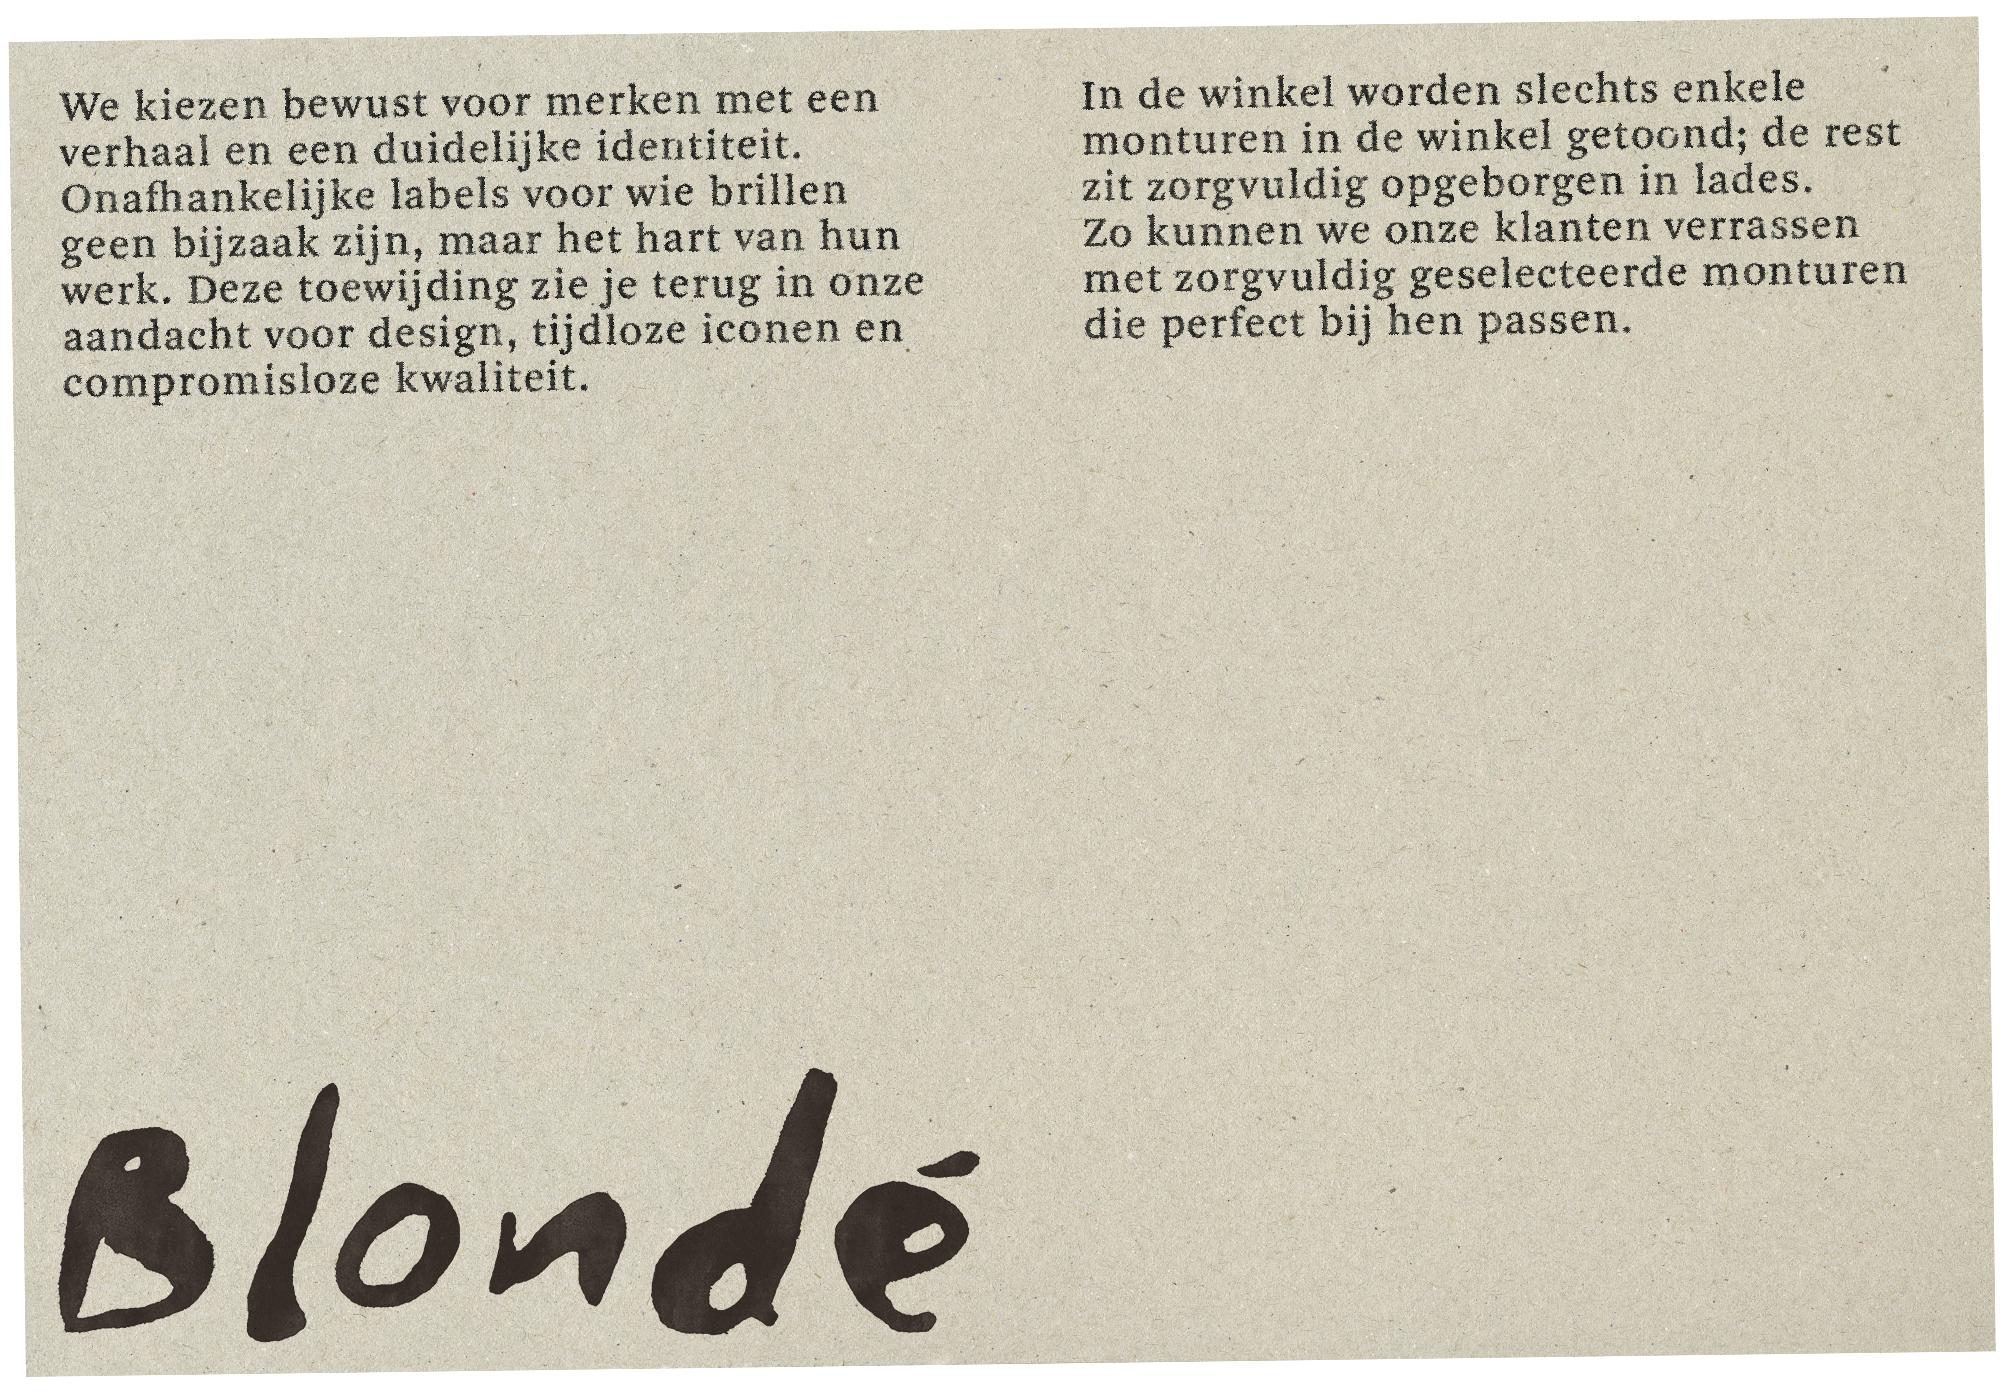 We kiezen bewust voor merken met een
verhaal en een duidelijke identiteit.
Onafhankelijke labels voor wie brillen
geen bijzaak zijn, maar het hart van hun
werk. Deze toewijding zie je terug in onze
aandacht voor design, tijdloze iconen en
compromisloze kwaliteit.
In de winkel worden slechts enkele
monturen in de winkel getoond; de rest
zit zorgvuldig opgeborgen in lades.
Zo kunnen we onze klanten verrassen
met zorgvuldig geselecteerde monturen
die perfect bij hen passen.
Blondé